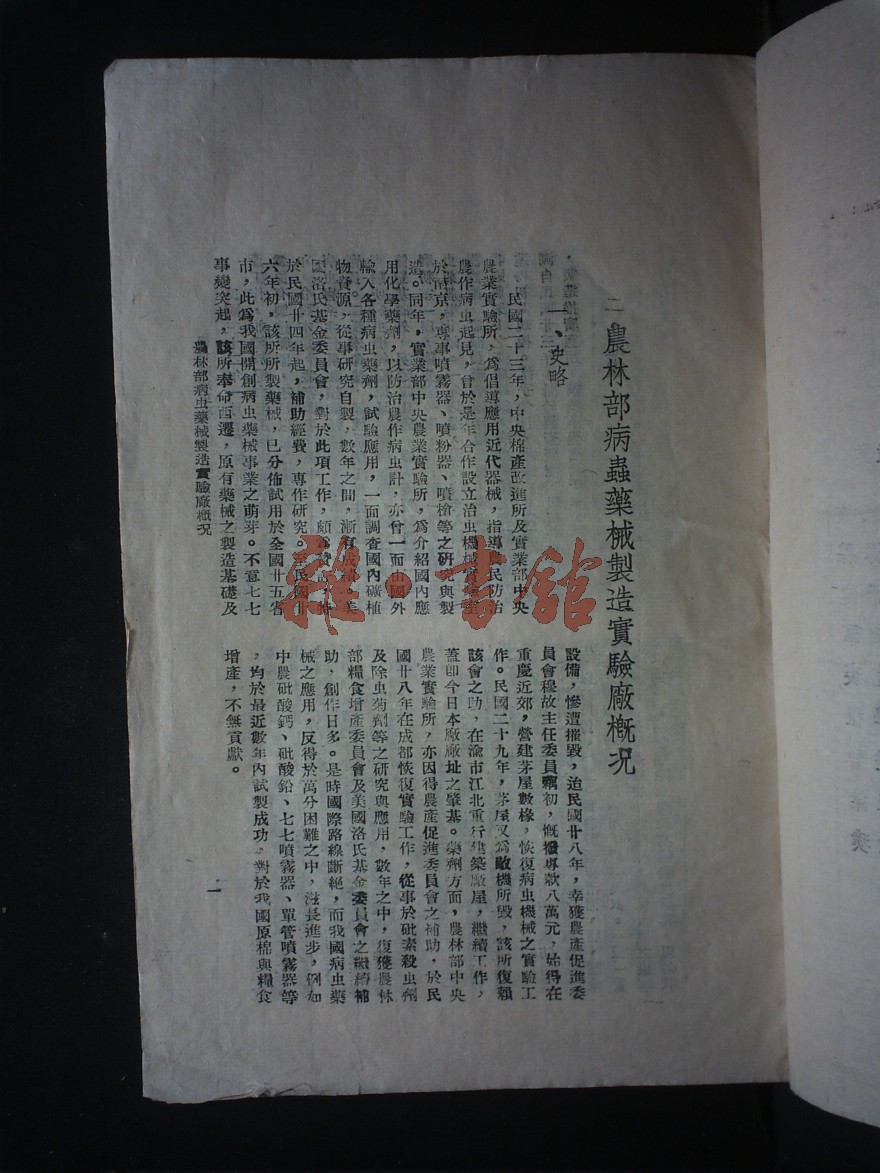 二 農林部病蟲藥械製造實驗厰概况
一、史略
民國二十三年，中央棉產改進所及實業部中央
農業實驗所，爲倡導應用近代器械，指導農民防治
農作病虫起見，曾於是年合作設立治虫機械實驗
於南京，專事噴霧器、噴粉器、噴槍等之研究與製
造。同年，實業部中央農業實驗所，爲介紹國內應
用化學藥劑，以防治農作病虫計，亦曾一面由國外
輸入各種病虫藥劑，試驗應用，一面調查國內礦植
物資源，從事研究自製，數年之間，漸有成
國洛氏基金委員會，對於此項工作，頗爲
於民國廿四年起，補助經費，專作研究。至民國廿
六年初，該所所製藥械，已分佈試用於全國廿五省
市，此爲我國開創病虫藥械事業之萌芽。不意七七
事變突起，該所奉命西遷，原有藥械之製造基礎及
設備，慘遭摧毀，迨民國廿八年，幸獲農產促進委
員會穆故主任委員藕初，慨撥專款八萬元，始得在
重慶近郊，營建茅屋數椽，恢復病虫機械之實驗工
作。民國二十九年，茅屋又爲敵機所毀，該所復賴
該會之助，在渝市江北重行建築厰屋，繼續工作，
蓋即今日本廠廠址之肇基。藥劑方面，農林部中央
農業實驗所，亦因得農產促進委員會之補助，於民
國廿八年在成都恢復實驗工作，從事於砒素殺虫劑
及除虫菊劑等之研究與應用，數年之中，復獲農林
部糧食增產委員會及美國洛氏基金委員會之繼續補
助，創作日多。是時國際路線斷絕，而我國病虫藥
械之應用，反得於萬分困難之中，滋長進步，例如
中農砒酸鈣、砒酸鉛、七七噴霧器、單管噴霧器等
，均於最近數年內試製成功，對於我國原棉與糧食
增產，不無貢獻。
農林部病虫藥械製造實驗廠概况
一
雜·書館